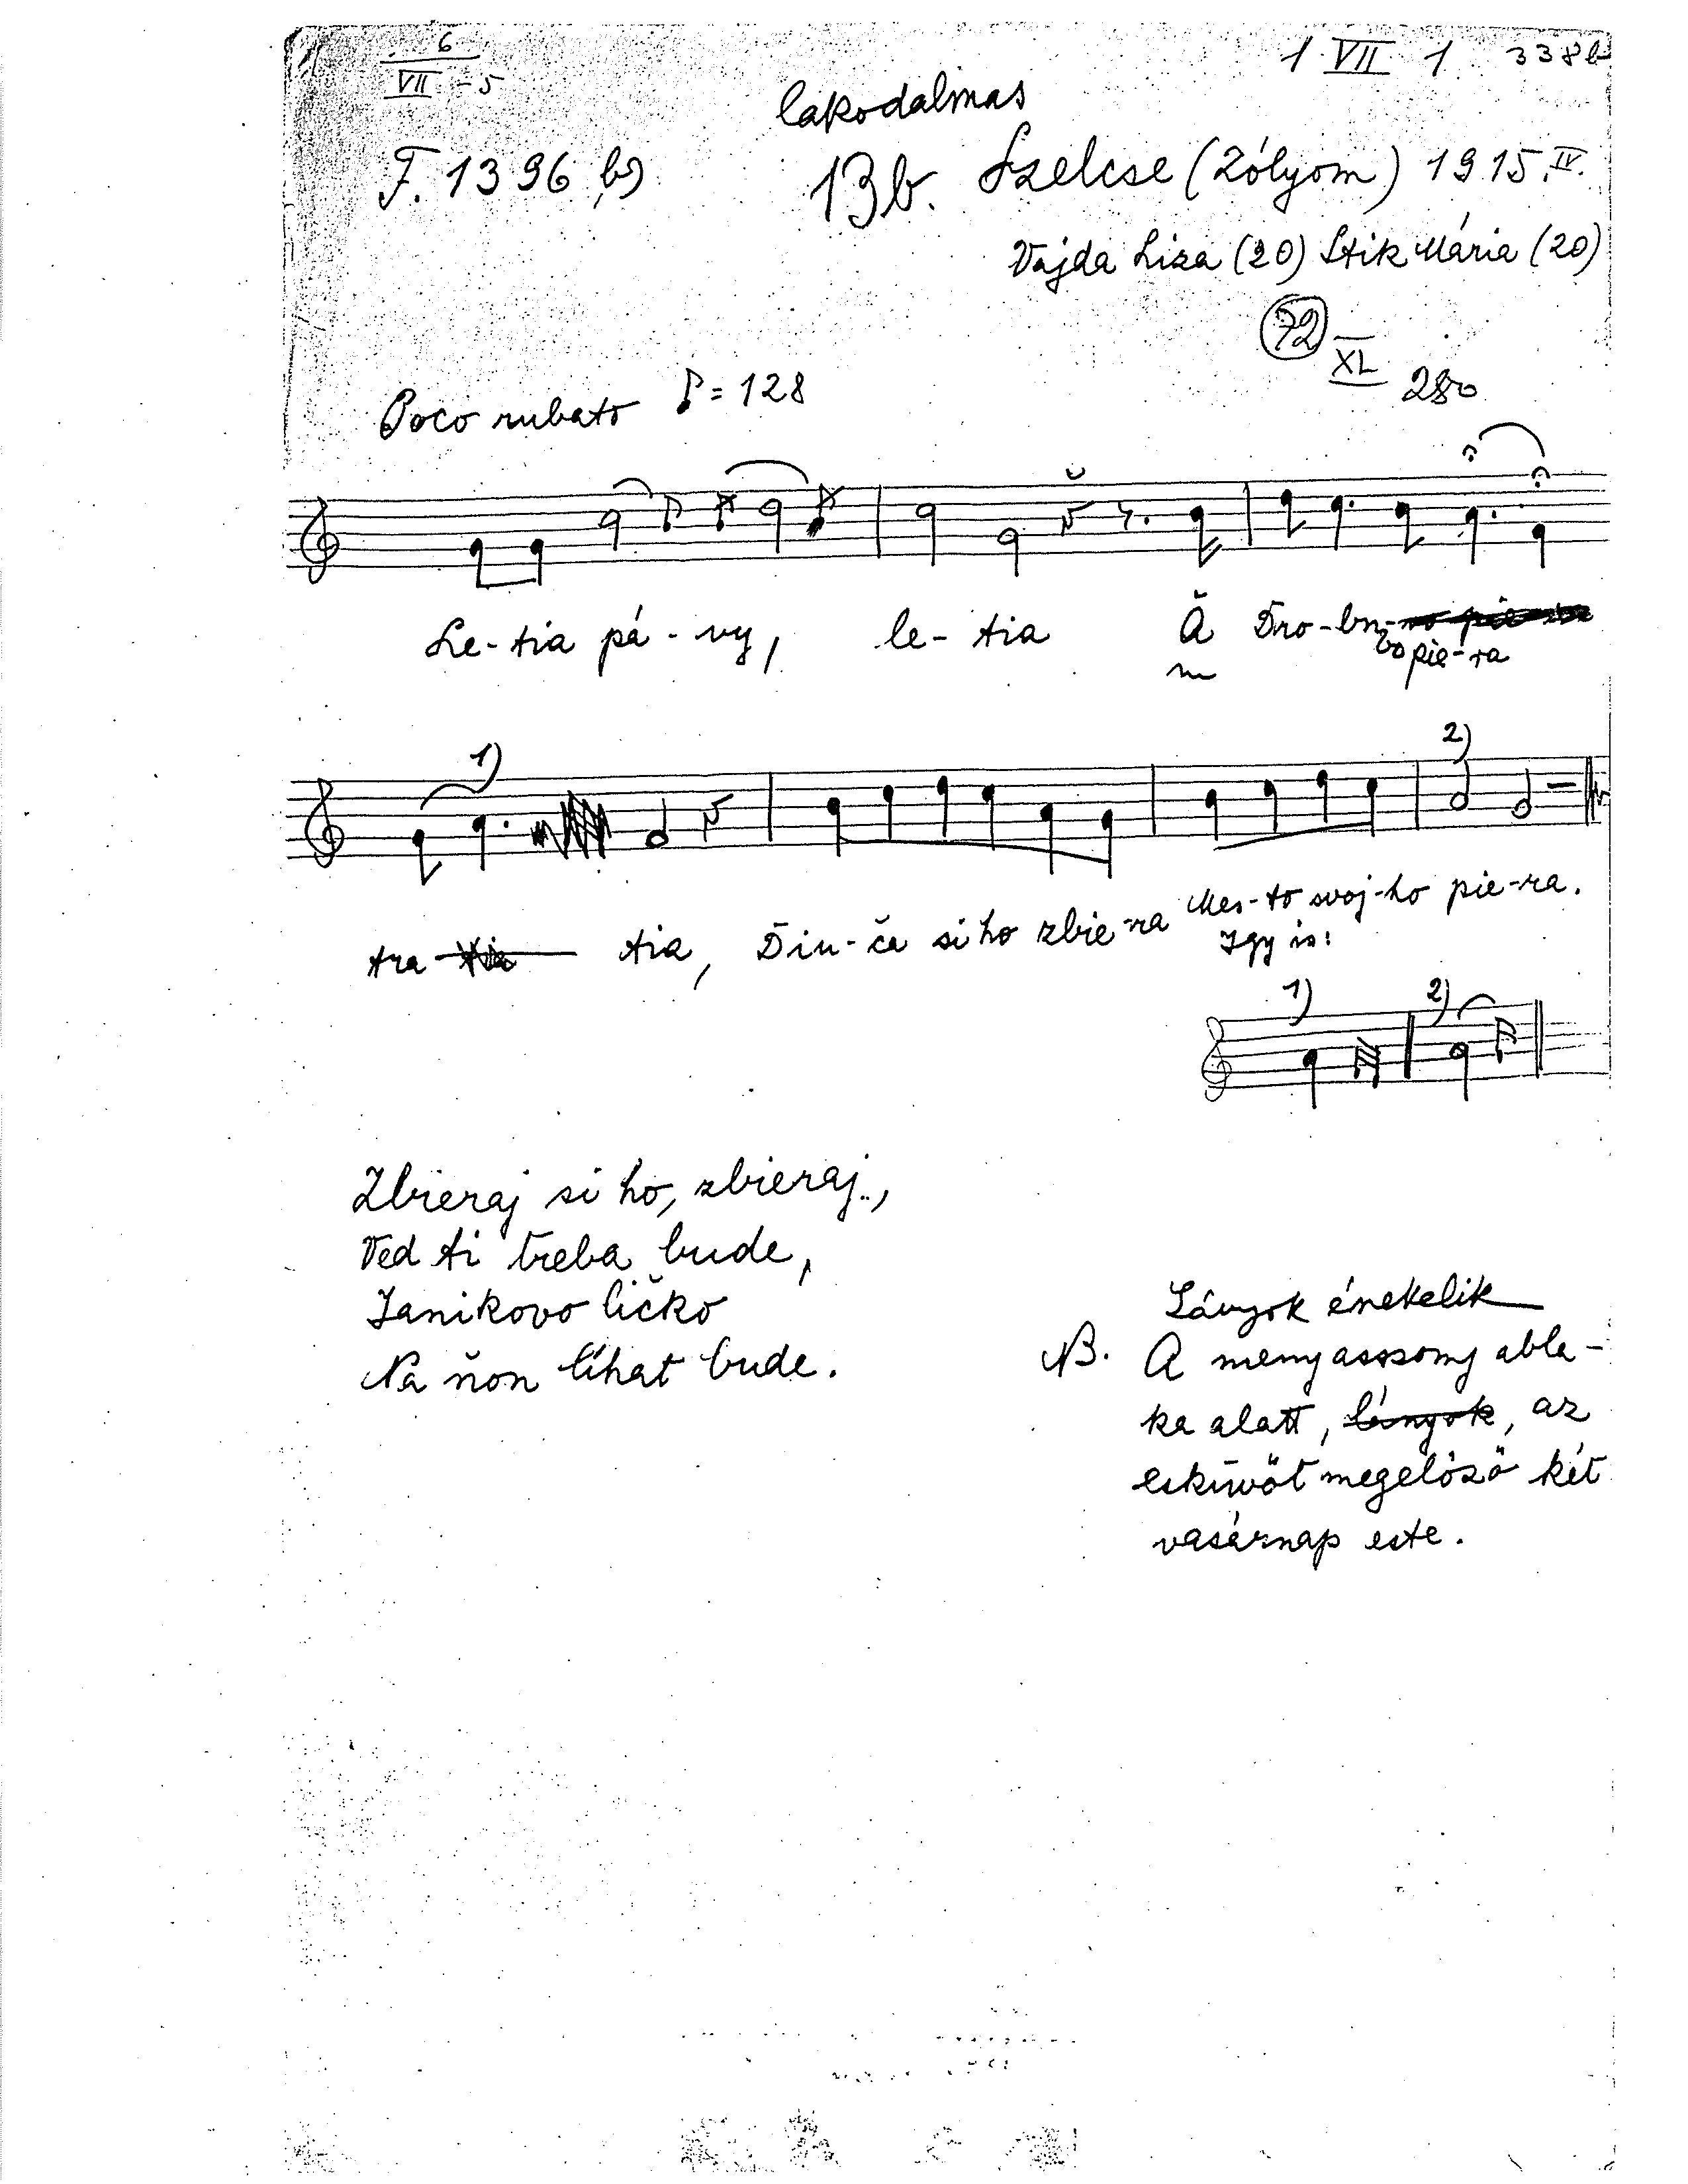 6
VII - 5
1 VII 1 338b
lakodalmas
F. 1396 b)
13b. Szelcse (Zólyom) 1915. IV.
Vajda Liza (20) Stik Mária (20)
72
XL 280
Poco rubato ♪ = 128
Le-tia pá-vy, le-tia A Dro-bn-
vo pie-ra
1) 2)
tra- tia, Diu-ča si ho zbie-ra Mes-to svoj-ho pie-ra.
Igy is:
1) 2)
Zbieraj si ho, zbieraj,
Ved ti treba bude,
Janikovo ličko
Na ňon líhat bude.
Lányok éneklik
NB. A menyasszony abla-
ka alatt, lányok, az
esküvőt megelőző két
vasárnap este.